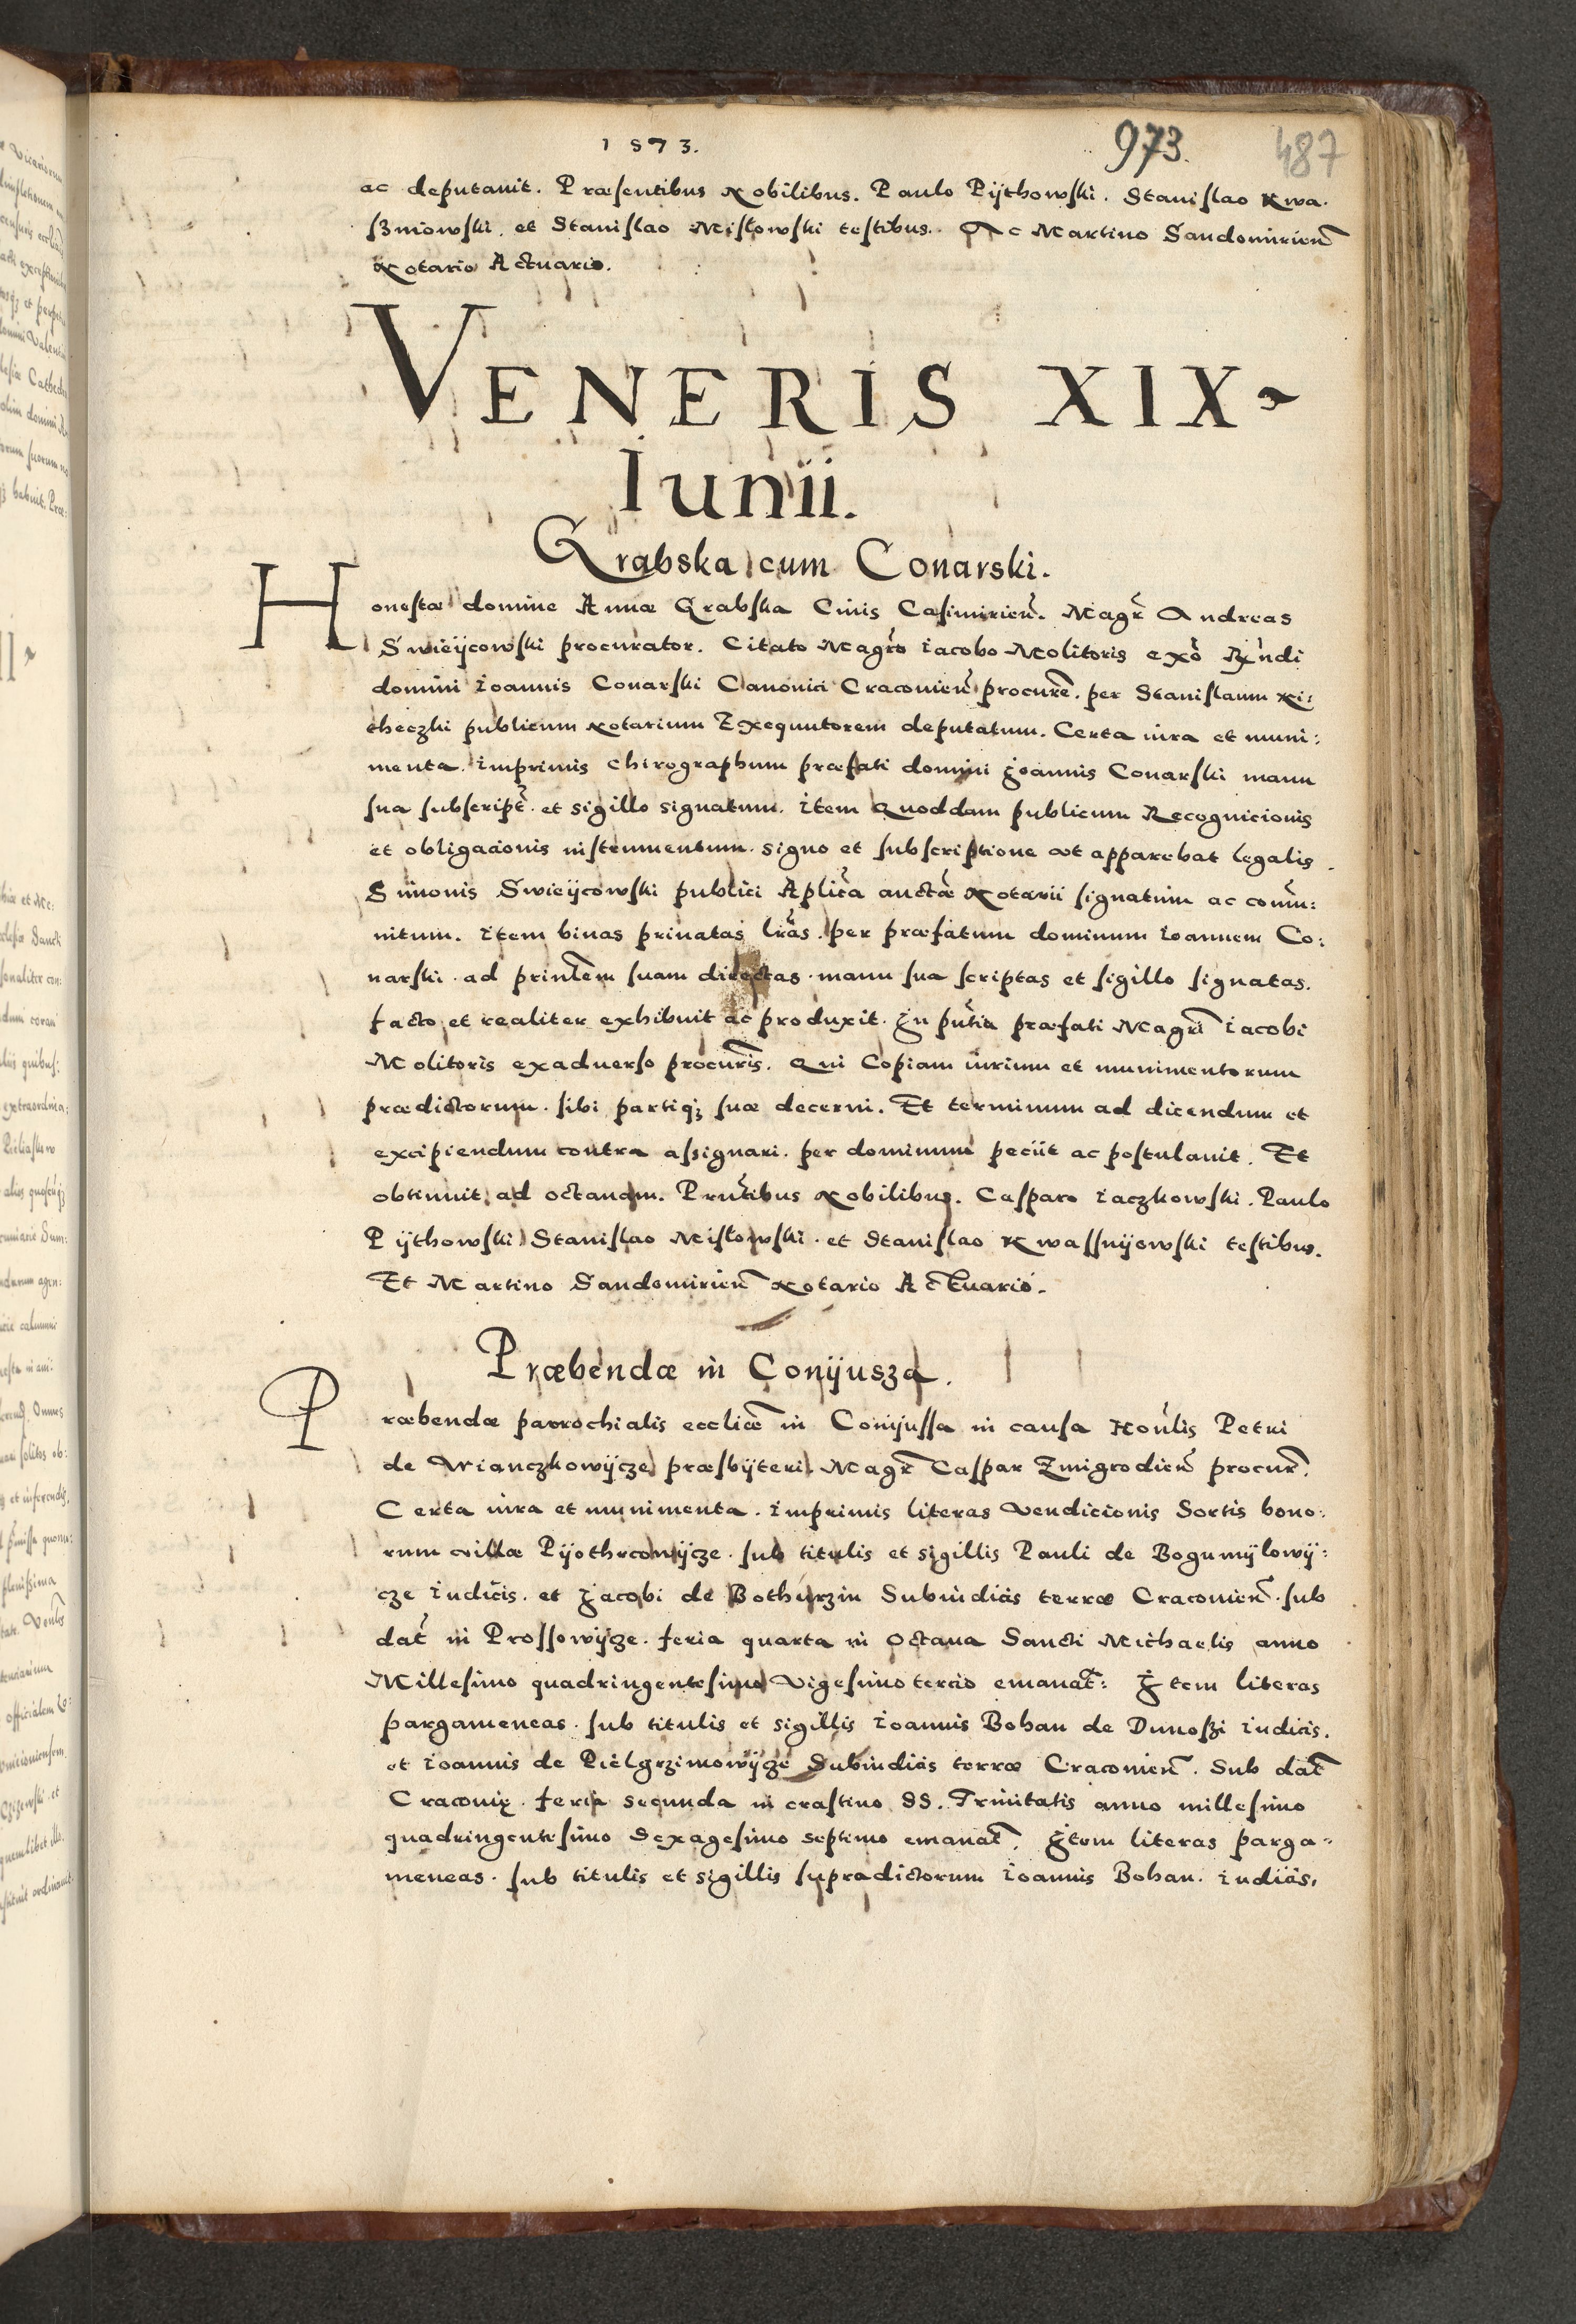 1573.
973.
487
ac deputauit. Præsentibus Nobilibus. Paulo Pÿthowski. Stanislao Kwa.
szniowski. et Stanislao Mistowski testibus. Ac Martino Sandomirien̄
Notario Actuario.
VENERIS XIX
Iunii.
Grabska cum Conarski.
Honestæ domine Annæ Grabska Ciuis Casimirien̄. Magr̄ Andreas
Swieÿcowski procurator. Citato Magr̄o Iacobo Molitoris exō Rn̄di
domini Ioannis Conarski Canonici Cracouien̄ procurē. per Stanislaum Ni:
checzki publicum Notarium Exequutorem deputatum. Certa iura et muni:
menta. Imprimis chirographum præfati domini Joannis Conarski manu
sua subscript̄. et sigillo signatum. Item Quoddam publicum Recognicionis
et obligacionis instrumentum. signo et subscriptione vt apparebat legalis
Simonis Swieÿcowski publici Aplīca auctāe Notarii signatum ac com̄u:
nitum. Item binas priuatas lr̄as. per præfatum dominum Ioannem Co:
narski. ad prin̄lem suam directas. manu sua scriptas et sigillo signatas.
facto et realiter exhibuit ac produxit. In pn̄tia præfati Magr̄i Iacobi
Molitoris exaduerso procur̄is. Qui Copiam iurium et munimentorum
prædictorum. sibi partiqꝫ suæ decerni. Et terminum ad dicendum et
excipiendum contra assignari. per dominum peciit ac postulauit. Et
obtinuit ad octauam. Prn̄tibus Nobilibus. Casparo Iaczkowski. Paulo
Pÿthowski Stanislao Mistowski. et Stanislao Kwassnÿowski testibus.
Et Martino Sandomirien̄ Notario Actuario.
Præbendæ in Conÿusza.
Præbendæ parrochialis ecclīæ in Conÿussa in causa Hon̄lis Petri
de Wianczkowÿcze præsbÿteri. Magr̄ Caspar Zmigrodien̄ procur̄.
Certa iura et munimenta. Imprimis literas Vendicionis Sortis bono:
rum villæ Pÿothrcowÿcze. sub titulis et sigillis Pauli de Bogumÿlowÿ:
cze Iudicis. et Jacobi de Bothurzin Subiudicis terræ Cracouien̄. sub
dat̄ in Prossowÿcze. feria quarta in Octaua Sancti Michaelis anno
Millesimo quadringentesimo Vigesimotercio emanat̄: Item literas
pargameneas. sub titulis et sigillis Ioannis Bohan de Dunoszi Iudicis.
et Ioannis de Pielgrzimowÿcze Subiudicis terræ Cracouien̄. Sub dat̄
Cracouię. feria secunda in crastino SS. Trinitatis anno millesimo
quadringentesimo Sexagesimo septimo emanat̄. Item literas parga-
meneas. sub titulis et sigillis supradictorum Ioannis Bohan. Iudicis,